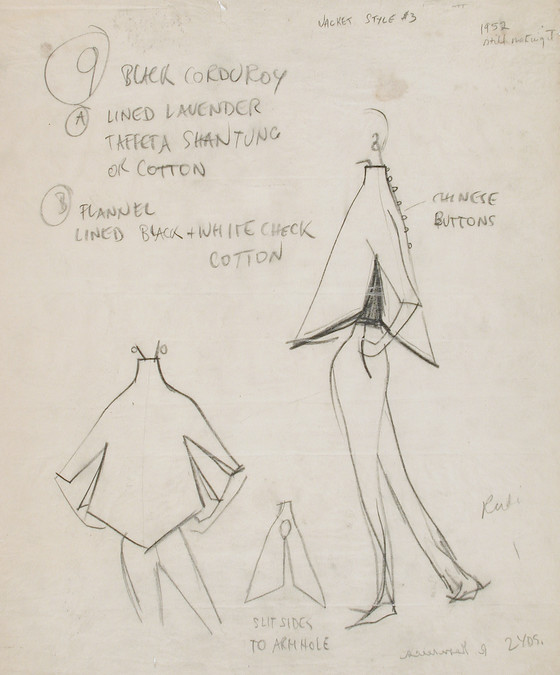 JACKET STYLE #3
1952
9
BLACK CORDUROY
A LINED LAVENDER
TAFFETA SHANTUNG
OR COTTON
B FLANNEL
LINED BLACK + WHITE CHECK
COTTON
CHINESE
BUTTONS
Rudi
SLIT SIDES
TO ARMHOLE
2 YDS.